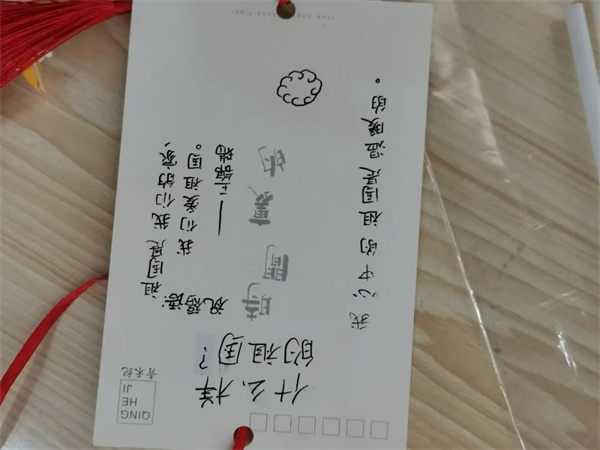 QING
HE
JI
青禾纪
什么样
的祖国？
我心中的祖国是温暖的。
時間裏的
祝福语：
祖国是我们的家，
我们爱祖国。